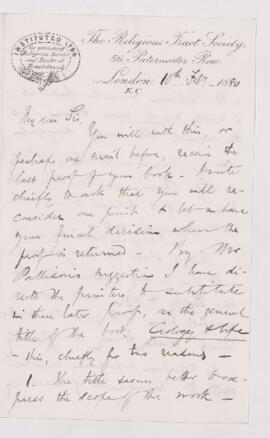 INSTITUTED 1799
The Religious Tract Society,
56, Paternoster Row,
London 10th Feb. 1880
E.C
My dear Sir,
You will with this, or
perhaps one mail before, receive the
last proof of your book. I write
chiefly to ask that you will re-
consider one point & let me have
your final decision when the
proof is returned — By Mr
Pattison's suggestion I have di-
rected the printers to substitute
in their later proofs, as the general
title of the book,
— this, chiefly for two reasons —
1. The title seems better to ex-
press the scope of the work —